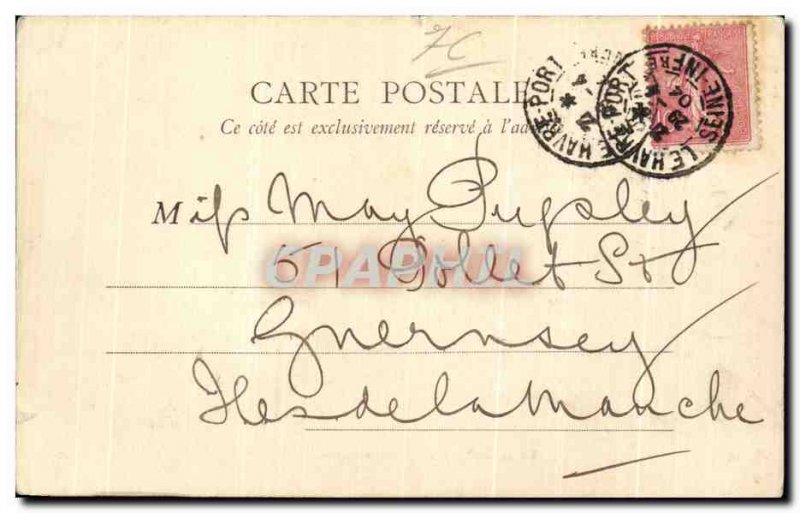 7C
CARTE POSTALE
Ce côté est exclusivement réservé à l'ad
LE HAVRE-PORT
SEINE-INFRE
29
04
Miss May Pugsley
51 Pollet St
Guernsey
Iles de la Manche
CPAPHIL